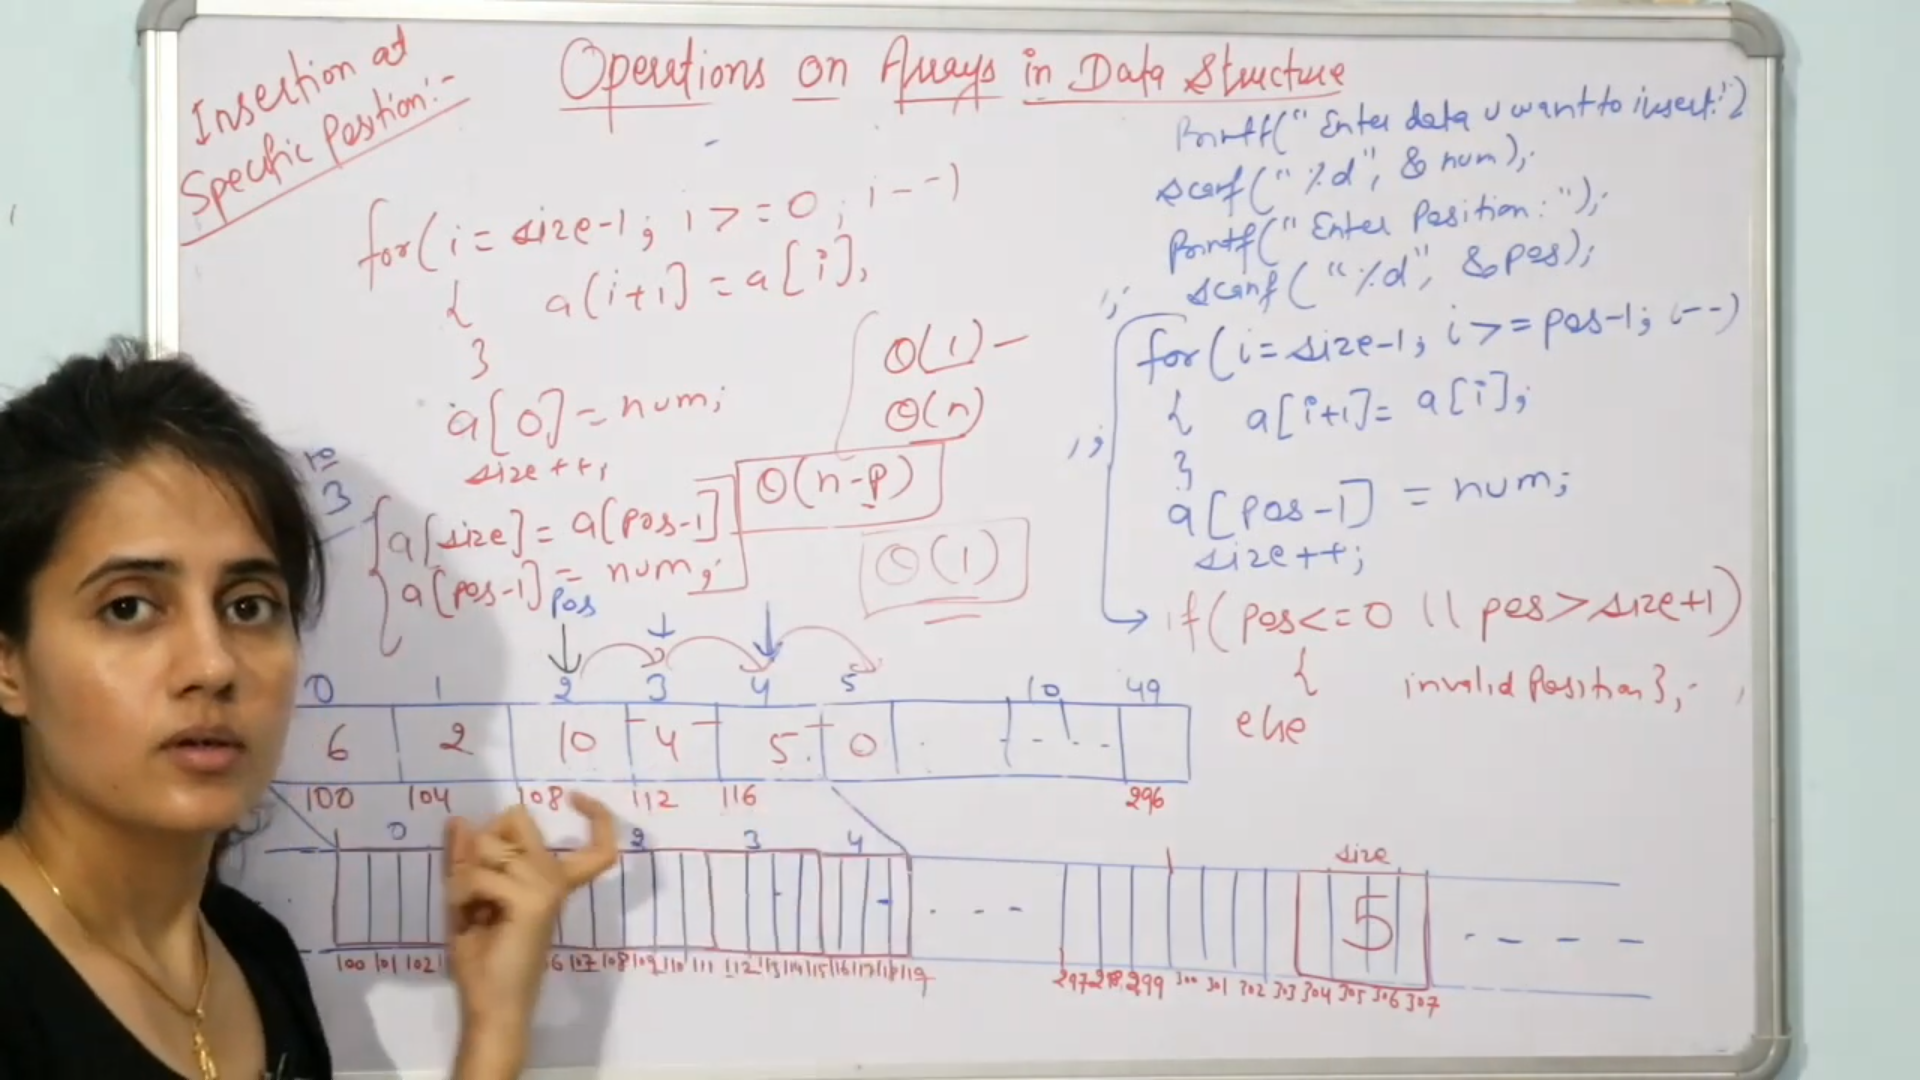 Insertion at
Specific Position:-
Operations on Arrays in Data Structure
for(i=size-1; i>=0; i--)
{ a(i+1]=a[i],
}
a[0]=num;
size++;
3
a[size]=a[pos-1]
a[pos-1]=num;
O(1)-
O(n)
O(n-p)
O(1)
Printf("Enter data u want to insert:")
scanf("%d", & num);
Printf("Enter Position:");
scanf("%d", &pos);
for(i=size-1; i>=pos-1; i--)
{ a[i+1]=a[i];
}
a[pos-1]=num;
size++;
if(pos<=0 || pos>size+1)
{ invalid Position},
else
pos
0 1 2 3 4 5 10 49
6 2 10 4 5 0
100 104 108 112 116 296
0 2 3 4
size
5
100 101 102 107 108 109 110 111 112 113 114 115 116 117 118 119
297 298 299 300 301 302 303 304 305 306 307